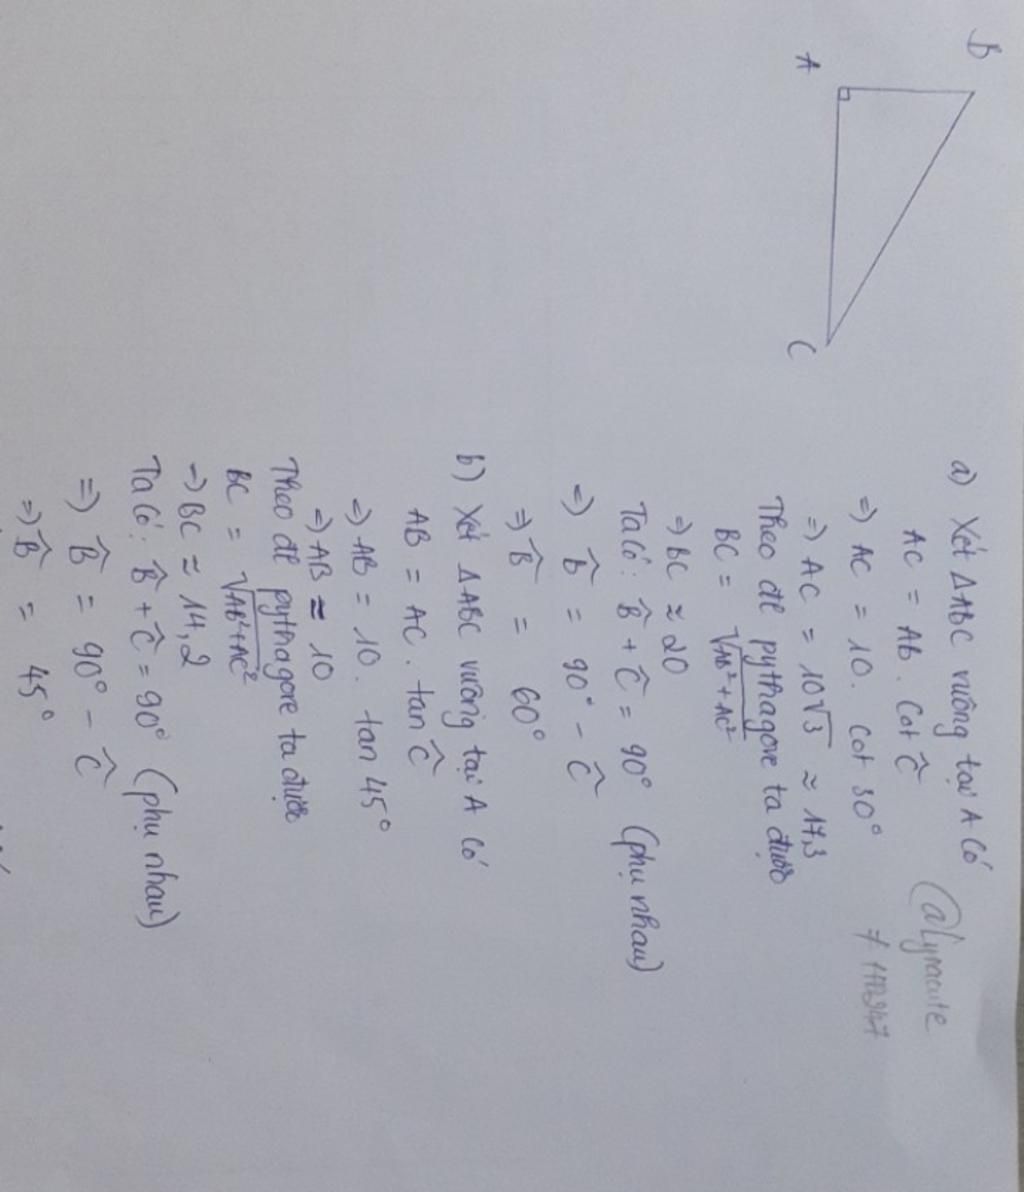 B
A
C
a) Xét ΔABC vuông tại A có
AC = AB . Cot Ĉ
=) AC = 10 . cot 30°
=) AC = 10√3 ≈ 17,3
Theo đl pythagore ta được
BC = √AB²+AC²
=) BC ≈ 20
Ta có : B̂ + Ĉ = 90° (phụ nhau)
=) B̂ = 90° - Ĉ
=) B̂ = 60°
b) Xét ΔABC vuông tại A có
AB = AC . tan Ĉ
=) AB = 10 . tan 45°
=) AB ≈ 10
Theo đl pythagore ta được
BC = √AB²+AC²
=) BC ≈ 14,2
Ta có : B̂ + Ĉ = 90° (phụ nhau)
=) B̂ = 90° - Ĉ
=) B̂ = 45°
@lynacute